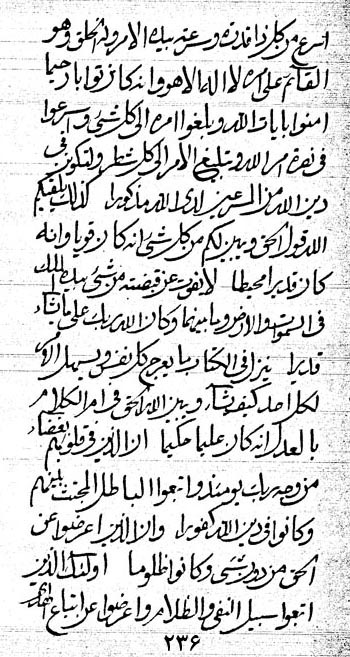 اسرع من كل ذا قدرة وسرعته بيده الامر وله الخلق وهو
القائم على امره لا اله الا هو وانه كان توابا رحيما
امنوا بايات الله وبلغوا امره الى كل شئ وسرعوا
فى نصرة امر الله وتبليغ الامر الى كل شطر ولتكونن فى
دين الله من السرعين لدى الله مذكورا كذلك يلقيكم
الله قول الحق ويبين لكم من كل شئ انه كان قويا وانه
كان قديرا محيطا لا يفوت عن قبضته من شئ بيده الملك
فى السموات والارض وما بينهما وكان الله ربك على ما يشاء
قديرا ينزل فى الكتاب ما يعرج كل نفس ويسهل الامر
لكل احد كيف يشاء ويبين الله الحق فى ام الكلام
بالعدل انه كان عليما حكيما ان الذين فى قلوبهم بغضاء
من وجه ربك يومئذ واتبعوا الباطل المجتث بينهم
وكانوا فى دين الله كفورا وان الذين اعرضوا عن
الحق من دون شئ وكانوا ظلوما اولئك الذين
اتبعوا سبيل النفى والظلام واعرضوا عن اتباع الهدى
٢٣۶